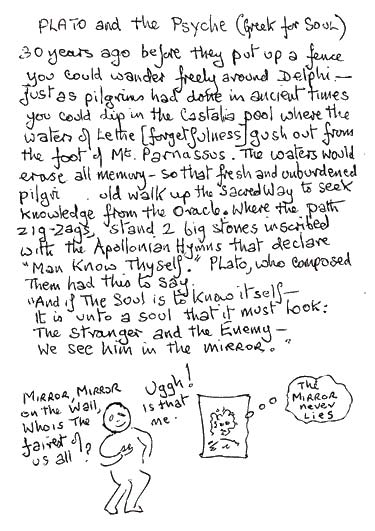 PLATO and the Psyche (Greek for SOUL)
30 years ago before they put up a fence
you could wander freely around Delphi —
Just as pilgrims had done in ancient times
you could dip in the Castalia pool where the
waters of Lethe [forgetfulness] gush out from
the foot of Mt. Parnassus. The waters would
erase all memory - so that fresh and unburdened
old walk up the Sacred Way to seek
knowledge from the Oracle. Where the path
zig-zags, stand 2 big stones inscribed
with the Apollonian Hymns that declare
"Man Know Thyself." Plato, who composed
Them had this to say.
"And if The Soul is to Know itself —
It is unto a soul that it must look:
The Stranger and the Enemy —
We see him in the mirror."
MIRROR, MIRROR
on the wall,
Who is The
fairest of
us all?
Uggh!
is that
me.
The
MIRROR
never
Lies